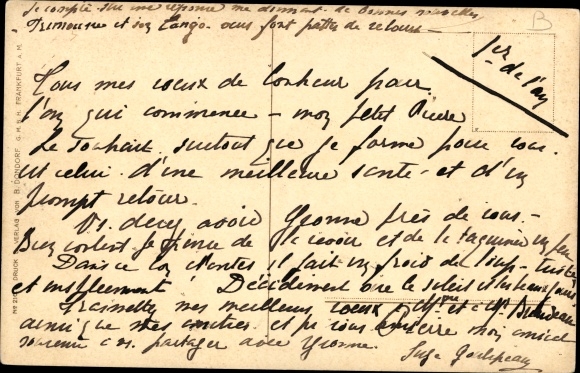 Je compte sur une réponse me donnant de bonnes nouvelles
et son Tango vous font pattes de velours
B
1er
de l'an
Tous mes voeux de bonheur pour
l'an qui commence - mon petit Pierre
Le souhait surtout que je forme pour vous
est celui d'une meilleure santé - et d'un
prompt retour.
Vs. devez avoir Yvonne près de vous. -
Bien contente je pense de le revoir et de le taquiner un peu
Dans ce bon Nantes il fait un froid de loup -
et Décidement vive le soleil et les beaux jours
mes meilleurs voeux à Mme et à Mr
ainsi que les notres et je vous envoie mon amical
souvenir à partager avec Yvonne.
Suze
No 210 DRUCK U. VERLAG VON B. DONDORF G. M. B. H. FRANKFURT A. M.